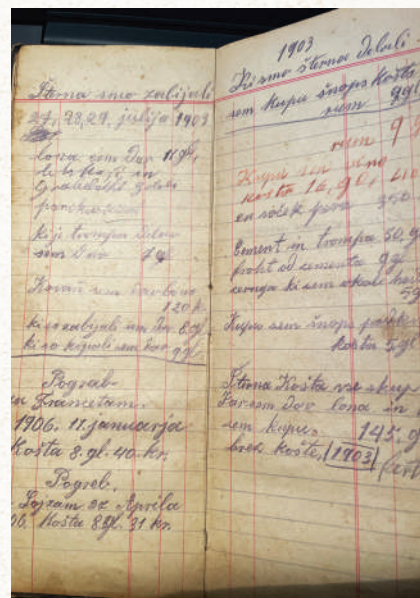 Šterna smo zabijali
27, 28, 29. julija 1903
lona sem dav 11 gl,
ki je trompa delov
sem dav 7 gl
Kovaču sem dav
120 k
ki so zabijali sem dav 8 gl
ki so kopali sem dav 9 gl
Pogreb
za Francetam
1906. 17. januarja
Košta 8. gl. 40 kr.
Pogreb.
Lojzam 22 Aprila
06. Košta 8 gl. 31 kr.
1903
Ki smo šterna delali
sem kupu šnops košta
rum 9 gl
rum 9
Kupu sem vino
košta 16, 90,
en soček piva 350
Cement in trompa 50, g
froht od cementa 9 gl
Kupu sem šnops
košta 5 gl
Šterna Košta vse skup
kar sem dav lona in
sem kupu 145. g
brek košte, (1903)